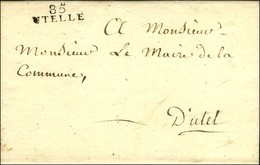 85
UTELLE
A Monsieur
Monsieur Le Maire de la
Commune,
D'utel